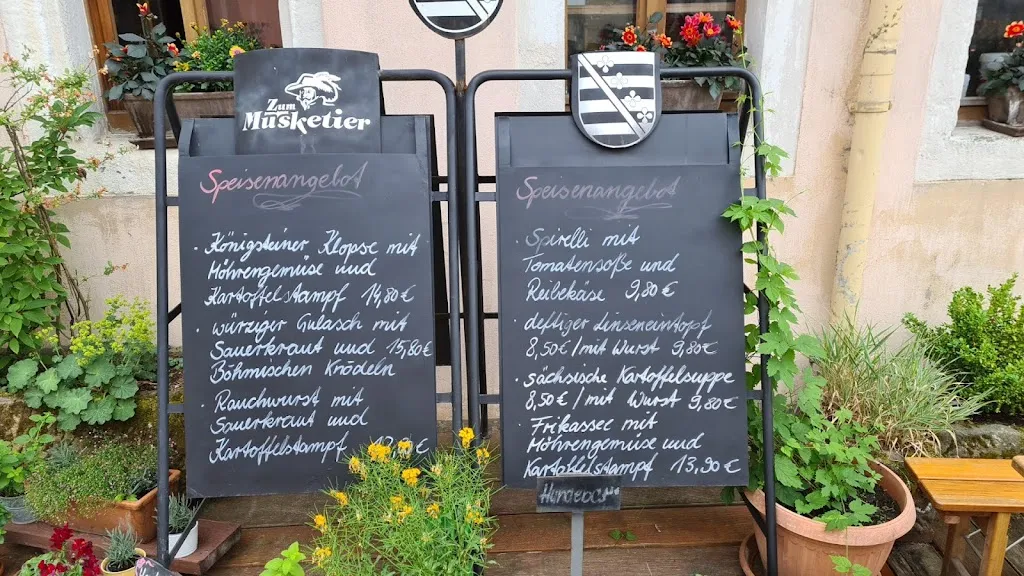 Zum
Musketier
Speisenangebot
· Königsteiner Klopse mit
Möhrengemüse und
Kartoffelstampf 14,80€
· würziger Gulasch mit
Sauerkraut und 15,80€
Böhmischen Knödeln
· Rauchwurst mit
Sauerkraut und
Kartoffelstampf
Speisenangebot
· Spirelli mit
Tomatensoße und
Reibekäse 9,80€
· deftiger Linseneintopf
8,50€/mit Wurst 9,80€
· sächsische Kartoffelsuppe
8,50€/mit Wurst 9,80€
· Frikassee mit
Möhrengemüse und
Kartoffelstampf 13,90€